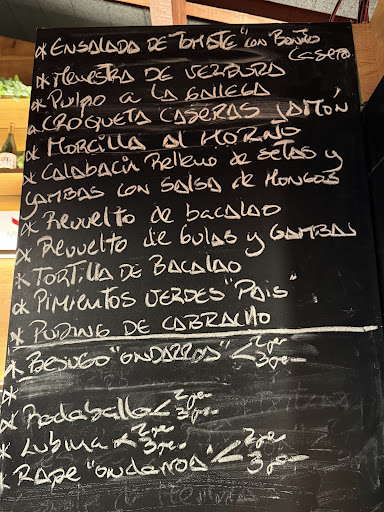 * ENSALADA DE TOMATE "con BONITO
CASERO
* MENESTRA DE VERDURA
* PULPO A LA GALLEGA
* CROQUETA CASERAS JAMÓN
* MORCILLA AL HORNO
* CALABACIN Relleno de setas y
GAMBAS con SALSA de HONGOS
* Revuelto de bacalao
* Revuelto de Gulas y GAMBAS
* TORTILLA DE BACALAO
* PIMIENTOS VERDES "PAIS"
* PUDING DE CABRACHO
* BESUGO "ONDARROA" < 2 per
3 per
*
* Rodaballo < 2 per
3 per
* Lubina < 2 per
3 per
* RAPE "ondarroa" < 2 per
3 per